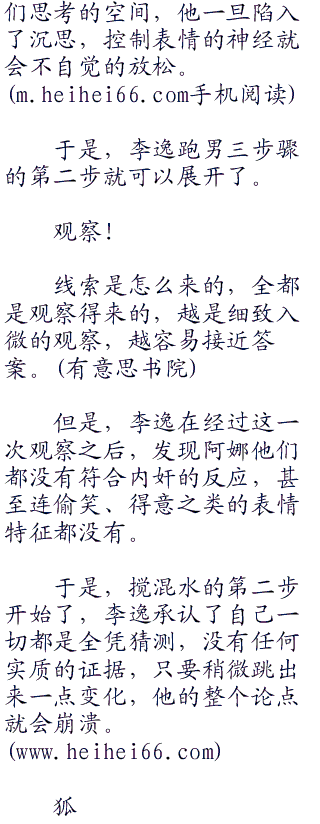 们思考的空间，他一旦陷入
了沉思，控制表情的神经就
会不自觉的放松。
(m.heihei66.com手机阅读)
于是，李逸跑男三步骤
的第二步就可以展开了。
观察！
线索是怎么来的，全都
是观察得来的，越是细致入
微的观察，越容易接近答
案。(有意思书院)
但是，李逸在经过这一
次观察之后，发现阿娜他们
都没有符合内奸的反应，甚
至连偷笑、得意之类的表情
特征都没有。
于是，搅混水的第二步
开始了，李逸承认了自己一
切都是全凭猜测，没有任何
实质的证据，只要稍微跳出
来一点变化，他的整个论点
就会崩溃。
(www.heihei66.com)
狐